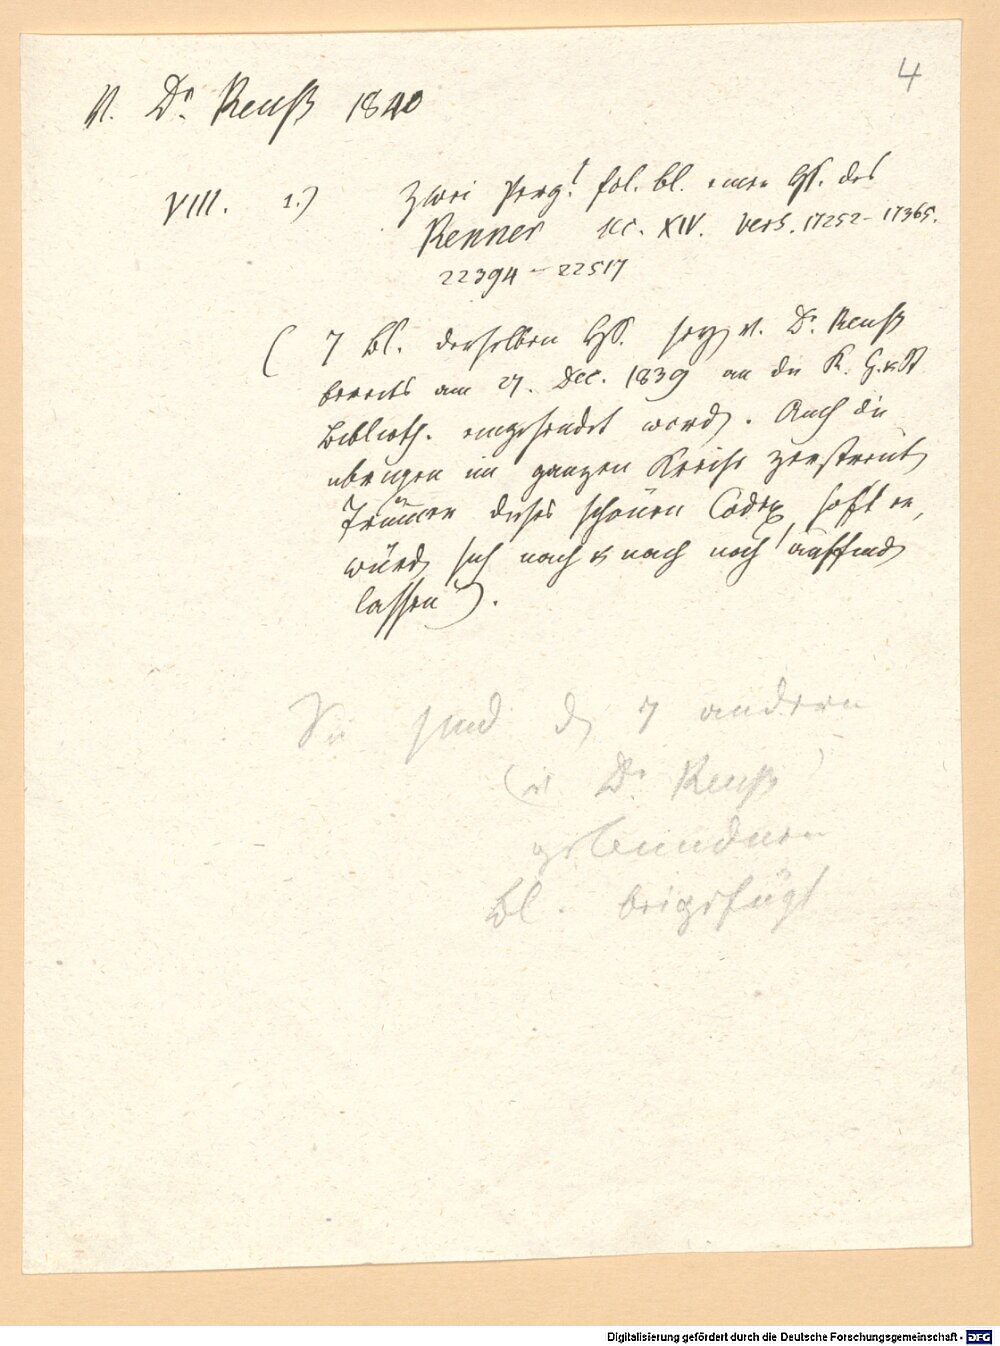 4
N. Dr. Reuß 1840
VIII. 1.) Zwei Perg. fol. bl. einer Hs. des
Renner sec. XIV. vers. 17252-17365.
22394-22517
( 7 Bl. derselben Hs. v. Dr. Reuß
bereits am 27. Dec. 1839 an die K. H. u. St
Biblioth. eingesendet word. Auch die
übrigen im ganzen Kreise zerstreut
Trümmer dieses schönen Codex, hofft er,
würd sich nach & nach noch auffind
lassen).
Sie sind d 7 andern
(v Dr Reuß)
gefundenen
Bl. beigefügt
Digitalisierung gefördert durch die Deutsche Forschungsgemeinschaft - DFG